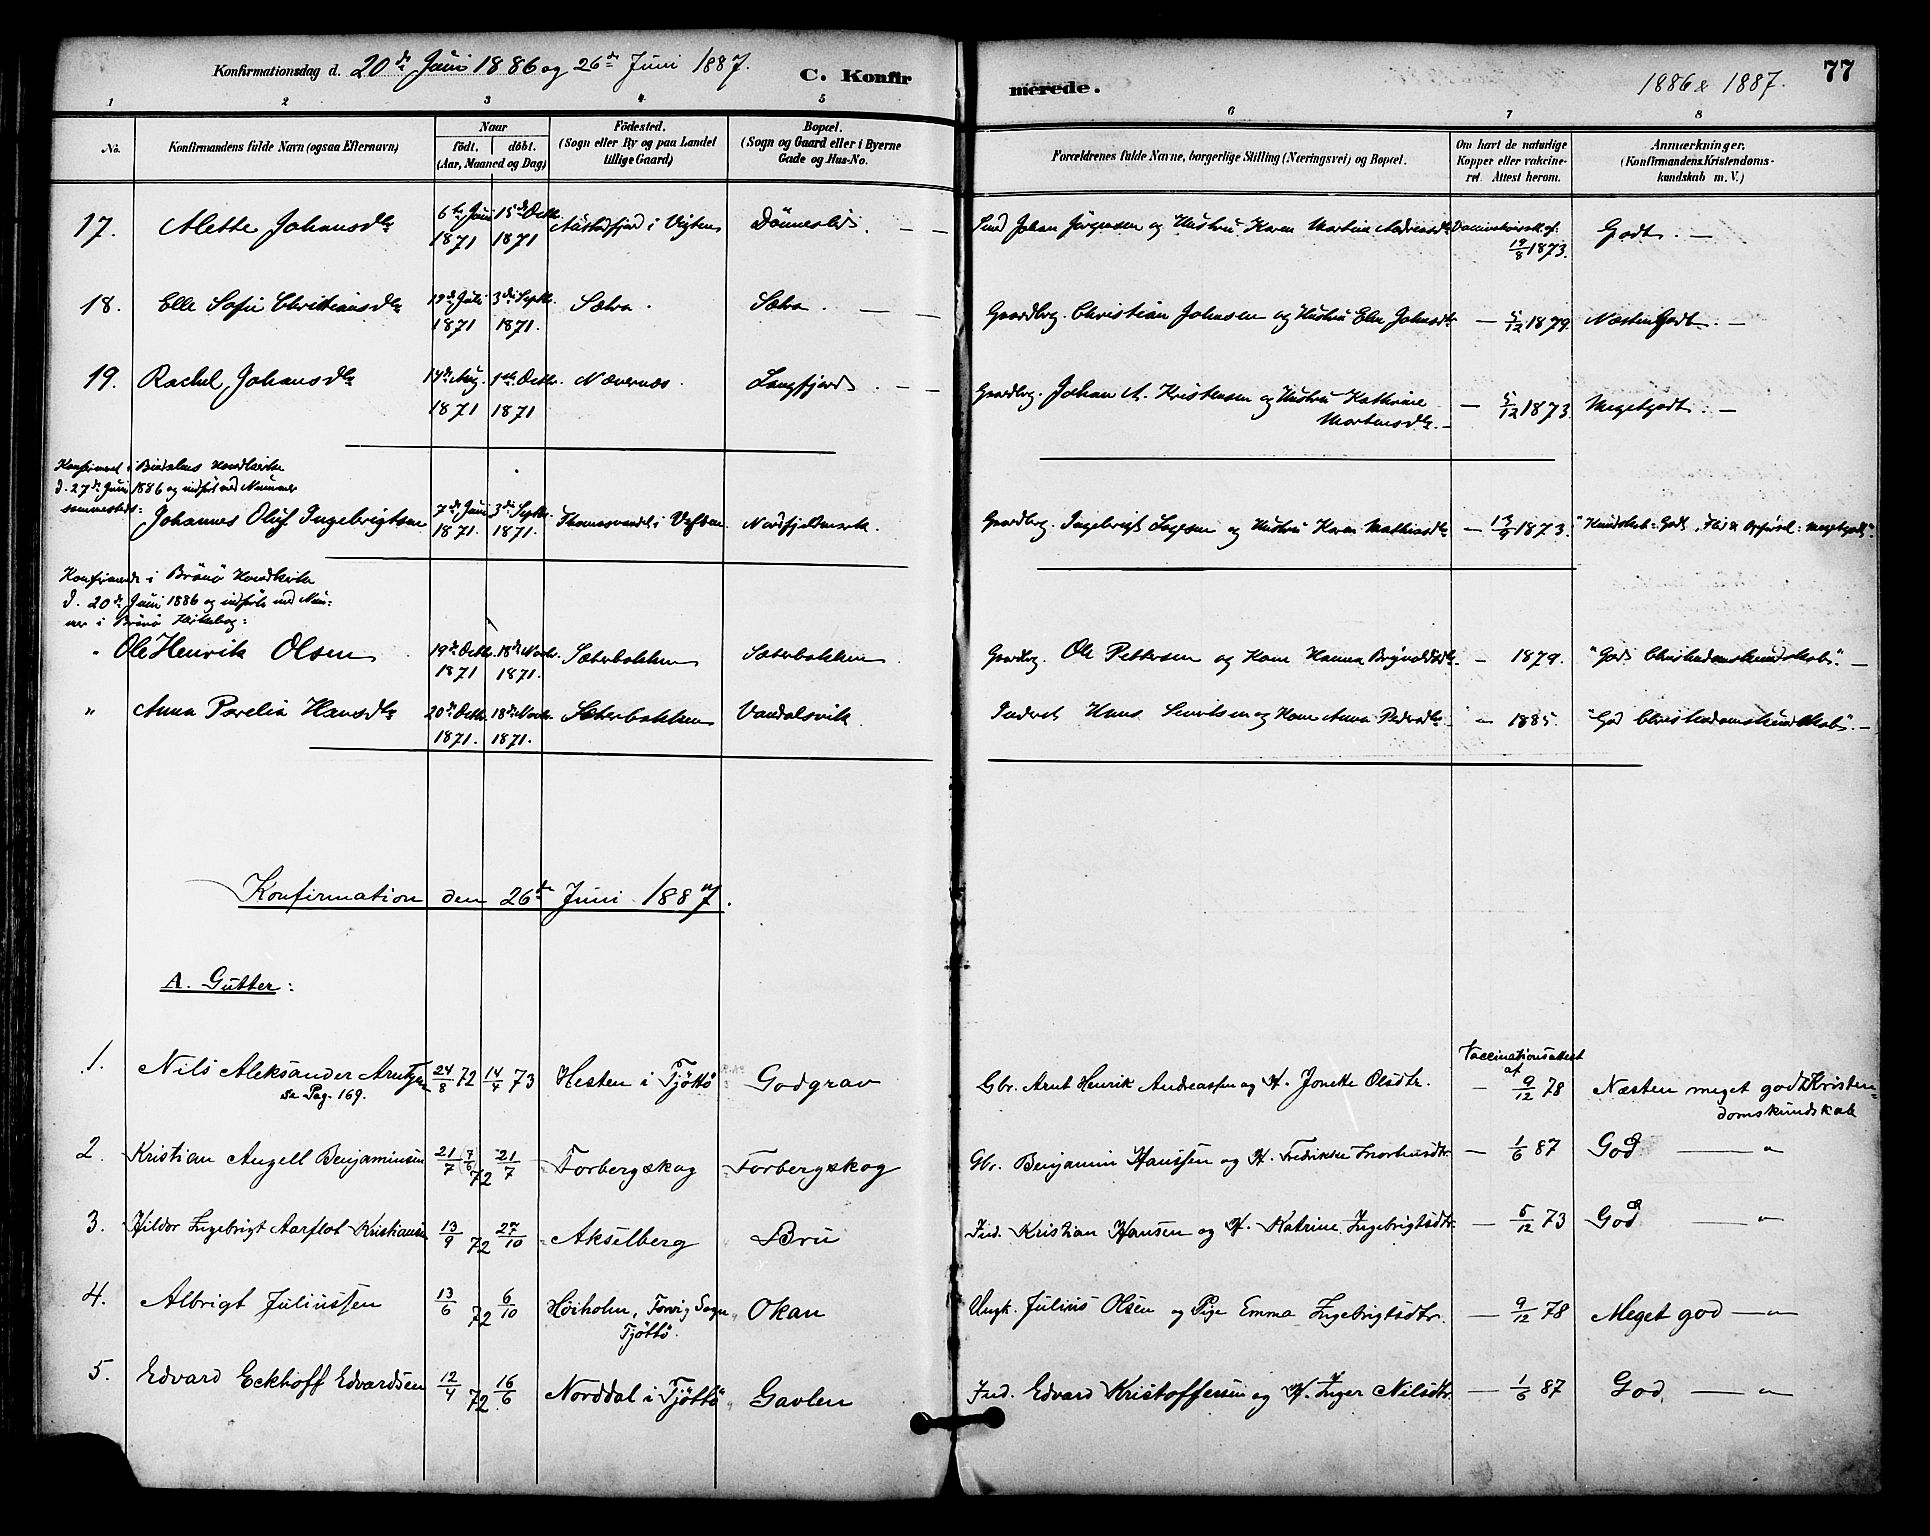 Konfirmationsdag d. 20de Juni 1886 og 26de Juni 1887. C. Konfirmerede. 1886 & 1887. 77
1 2 3 4 5 6 7 8
No. Konfirmandens fulde Navn (ogsaa Efternavn) Naar født, døbt. (Aar, Maaned og Dag) Födested. (Sogn eller By og paa Landet tillige Gaard) Bopæl. (Sogn og Gaard eller i Byerne Gade og Hus-No. Forældrenes fulde Navne, borgerlige Stilling (Næringsvei) og Bopæl. Om havt de naturlige Kopper eller vakcineret. Attest herom. Anmærkninger. (Konfirmandens Kristendomskundskab m. V.)
17. Alette Johansdtr 6te Juni 1871 15de Octbr. 1871 i Vigten Dönneslid. — — Johan Jörgensen og Hustru Karen Martine Andreasdtr 19/8 1873. Godt. —
18. Elle Sofie Christiansdtr 19de Juli 1871 3die Septbr. 1871. Sætra. Sætra. — — Gaardbrg. Christian Johnsen og Hustru Elen Johnsdtr — 5/12 1879 Næsten Godt. —
19. Rachel Johansdtr 14de Aug. 1871 1ste Octbr. 1871 Nævernæs. Langfjord. — — Gaardbrg. Johan A. Kristensen og Hustru Kathrine Mortensdtr. — — 5/12 1873. Megetgodt. —
Konfirmeret i Bindalens Hovedkirke
d. 27de Juni 1886 og indført med Nummer
sammesteds:
Johannes Oluf Ingebrigtsen 7de Juni 1871. 3die Septbr. 1871. i Vefsen. Nordfjeldmark. Gaardbrg. Ingebrigt og Hustru Karen Mathiasdtr — 1873. "Kundskab: Godt, Flid & Opførsel: megetgodt".
Konfirmerede i Brönö Hovedkirke
d. 20de Juni 1886 og indførte med Num-
mer i Brönö Kirkebog:
" Ole Henrik Olsen 19de Octbr. 1871 18de Novbr. 1871. Sæterbakken Sæterbakken. Gaardbrg. Ole Pettersen og Kone Hanna Brynildsdtr. — 1879. "God Christendomskundskab". —
" Anna Parelia Hansdtr 20de Octbr. 1871. 18de Novbr. 1871. Sæterbakken Vandalsvik. Inderst Hans og Kone Anna Pedersdtr — 1885. "God Christendomskundskab". —
Konfirmation den 26de Juni 1887.
A. Gutter:
1. Nils Aleksander Arntzen 24/8 72 14/4 73 Hesten i Tjöttö Godgrav Gbr. Arnt Henrik Andreassen og H. Jonette Olsdtr. Vaccinationsattest af — 9/12 78 Næsten meget god Kristen-
se Pag. 169. domskundskab
2. Kristian Angell Benjaminsen 21/7 (7/6) 72 21/7 Torbergskog Torbergskog Gbr. Benjamin Hanssen og H. Fredrikke — 1/6 87 God — "
3. Hildor Ingebrigt Aarflot Kristiansen 13/9 72 27/10 Akselberg Bru Ind. Kristian Hansen og H. Katrine Ingebrigtsdtr. — 5/12 73 God — "
4. Albrigt Juliussen 13/6 72 6/10 Høiholm, Forvig Sogn, Tjöttö. Okan Ungk. Julius Olsen og Pige Emma Ingebrigtsdtr. — 9/12 78 Meget god — "
5. Edvard Eckhoff Edvardsen 12/4 72 16/6 Norddal i Tjöttö Gavlen Ind. Edvard Kristoffersen og H. Inger Nilsdtr. — 1/6 87 God. — "